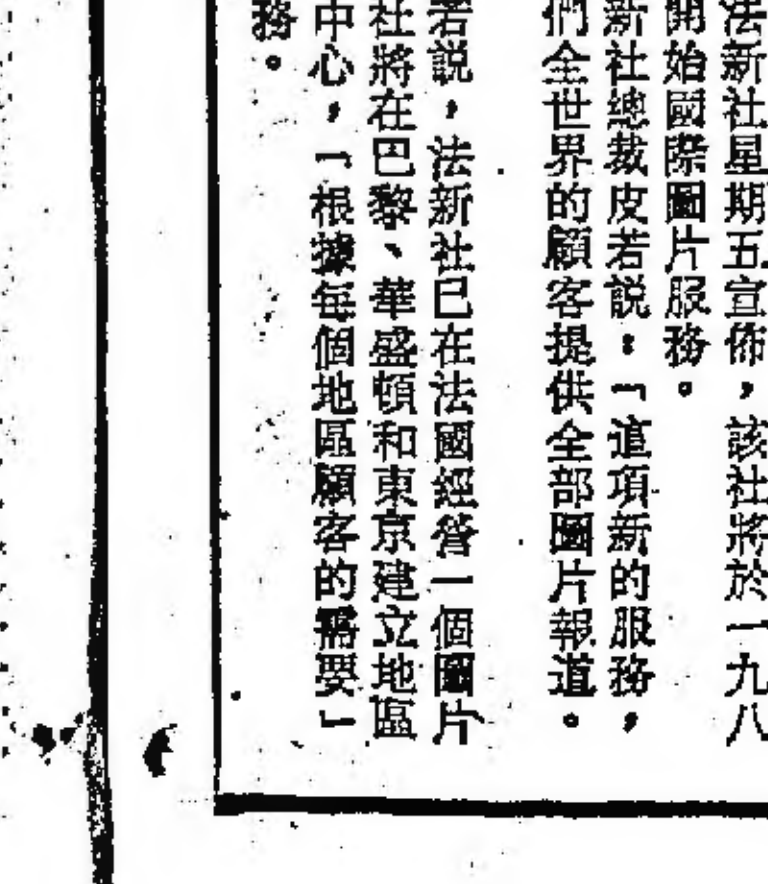 法新社星期五宣佈，該社將於一九八
開始國際圖片服務。
新社總裁皮若説：「這項新的服務，
們全世界的顧客提供全部圖片報道。
若説，法新社已在法國經營一個圖片
社將在巴黎、華盛頓和東京建立地區
中心，「根據每個地區顧客的需要」
務。